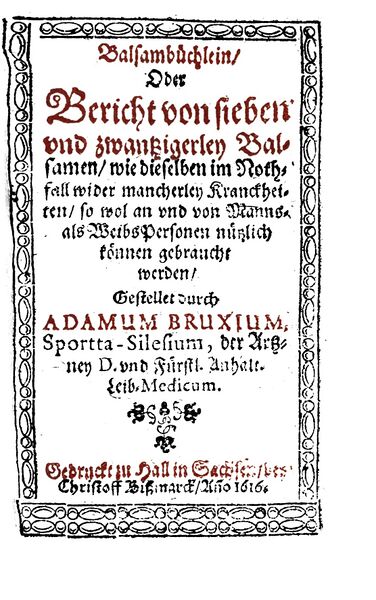 Balsambüchlein/
Oder
Bericht von sieben
vnd zwantzigerley Bal-
samen/ wie dieselben im Noth-
fall wider mancherley Kranckhei-
ten/ so wol an vnd von Manns-
als WeibsPersonen nützlich
können gebraucht
werden/
Gestellet durch
ADAMUM BRUXIUM,
Sportta-Silesium, der Artz-
ney D. vnd Fürstl. Anhalt.
Leib-Medicum.
Gedruckt zu Hall in Sachsen/ bey
Christoff Bißmarck/ Año 1616.